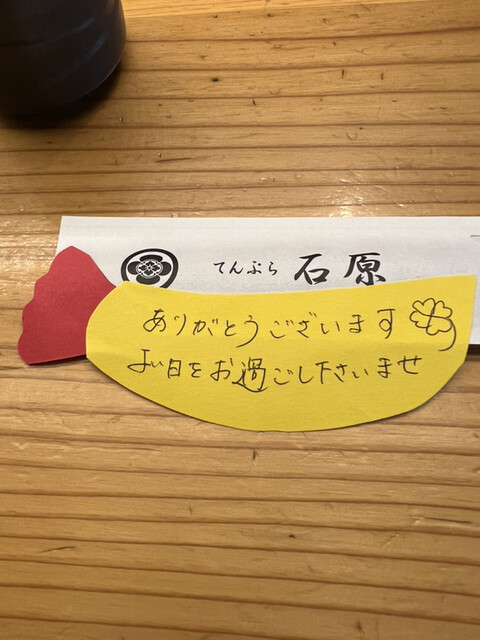 てんぷら 石原
ありがとうございます
よい日をお過ごし下さいませ